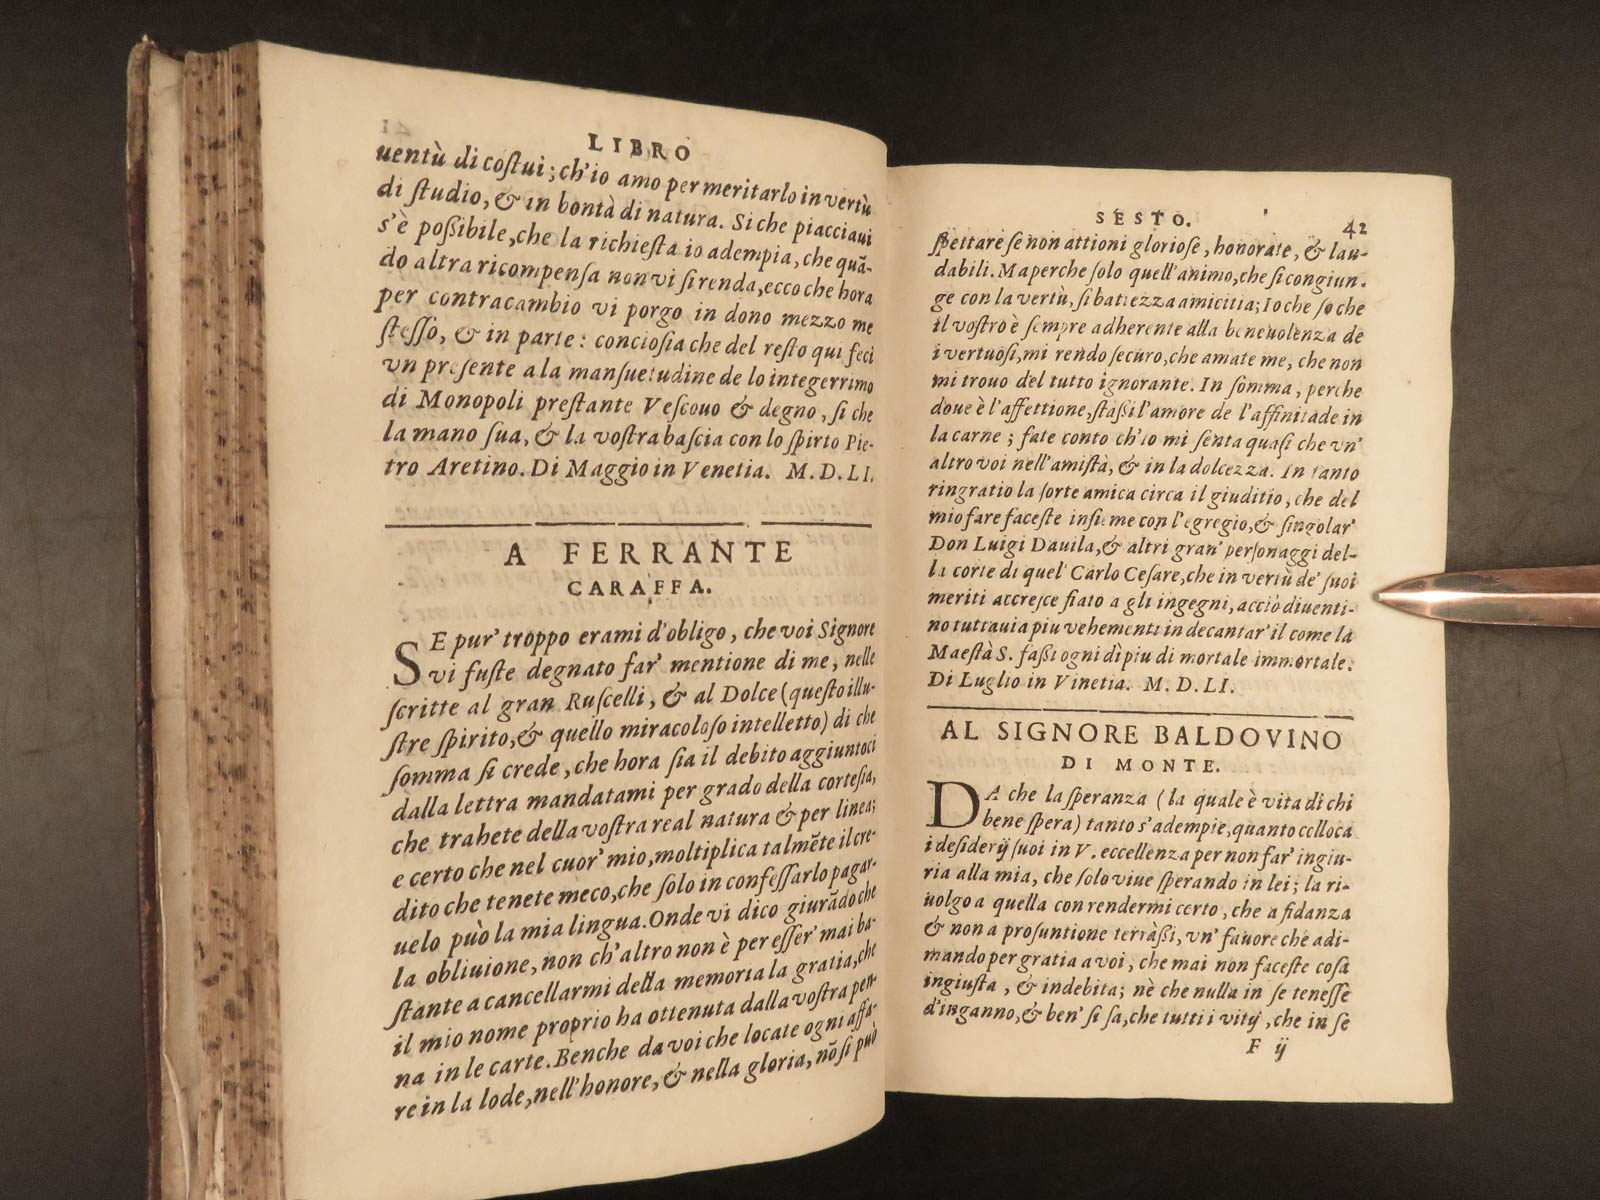 LIBRO
uentù di costui; ch'io amo per meritarlo in vertù
di studio, & in bontà di natura. Si che piacciaui
s'è possibile, che la richiesta io adempia, che quā-
do altra ricompensa non vi si renda, ecco che hora
per contracambio vi porgo in dono mezzo me
stesso, & in parte: conciosia che del resto qui feci
vn presente a la mansuetudine de lo integerrimo
di Monopoli prestante Vescouo & degno, si che
la mano sua, & la vostra bascia con lo spirto Pie-
tro Aretino. Di Maggio in Venetia. M. D. LI.
A FERRANTE
CARAFFA.
SE pur' troppo erami d'obligo, che voi Signore
vi fuste degnato far' mentione di me, nelle
scritte al gran Ruscelli, & al Dolce (questo illu-
stre spirito, & quello miracoloso intelletto) di che
somma si crede, che hora sia il debito aggiuntoci
dalla lettra mandatami per grado della cortesia,
che trahete della vostra real natura & per linea;
e certo che nel cuor' mio, moltiplica talmēte il cre-
dito che tenete meco, che solo in confessarlo pagar-
uelo può la mia lingua. Onde vi dico giurādo che
la obliuione, non ch'altro non è per esser' mai ba-
stante a cancellarmi della memoria la gratia, che
il mio nome proprio ha ottenuta dalla vostra pen-
na in le carte. Benche da voi che locate ogni affa-
re in la lode, nell'honore, & nella gloria, nō si può
SESTO. 42
spettare se non attioni gloriose, honorate, & lau-
dabili. Ma perche solo quell'animo, che si congiun-
ge con la vertù, si battezza amicitia; Io che so che
il vostro è sempre adherente alla beneuolenza de
i vertuosi, mi rendo securo, che amate me, che non
mi trouo del tutto ignorante. In somma, perche
doue è l'affettione, stassi l'amore de l'affinitade in
la carne; fate conto ch'io mi senta quasi che vn'
altro voi nell'amistà, & in la dolcezza. In tanto
ringratio la sorte amica circa il giuditio, che del
mio fare faceste insieme con l'egregio, & singolar'
Don Luigi Dauila, & altri gran' personaggi del-
la corte di quel' Carlo Cesare, che in vertù de' suoi
meriti accresce fiato a gli ingegni, acciò diuenti-
no tuttauia piu vehementi in decantar' il come la
Maestà S. fassi ogni dì piu di mortale immortale.
Di Luglio in Vinetia. M. D. LI.
AL SIGNORE BALDOVINO
DI MONTE.
DA che la speranza (la quale è vita di chi
bene spera) tanto s'adempie, quanto colloca
i desiderij suoi in V. eccellenza per non far' ingiu-
ria alla mia, che solo viue sperando in lei; la ri-
uolgo a quella con rendermi certo, che a fidanza
& non a prosuntione terrassi, vn' fauore che adi-
mando per gratia a voi, che mai non faceste cosa
ingiusta, & indebita; nè che nulla in se tenesse
d'inganno, & ben' si sa, che tutti i vitij, che in se
F ij